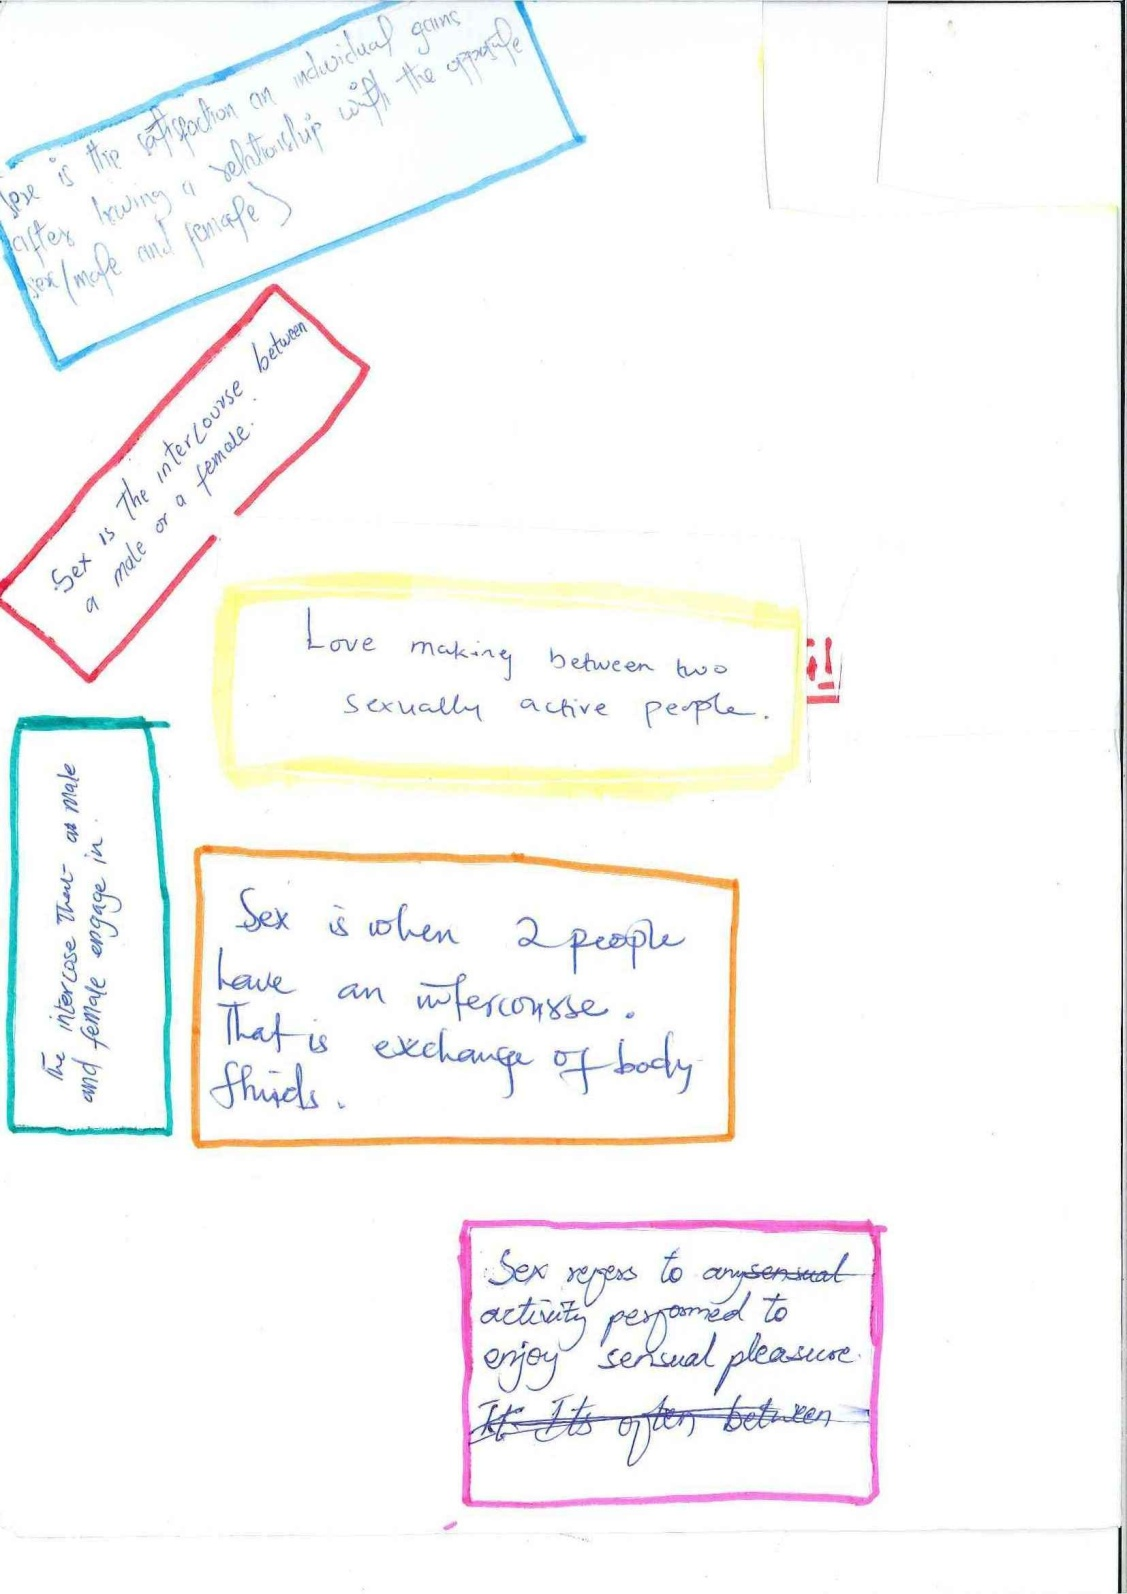 Sex is the satisfaction an individual gains
after having a relationship with the opposite
sex (male and female)
Sex is the intercourse between
a male or a female.
Love making between two
sexually active people.
The intercose that a male
and female engage in.
Sex is when 2 people
have an intercourse.
That is exchange of body
fluids.
Sex refers to any sensual
activity performed to
enjoy sensual pleasure.
It Its often between